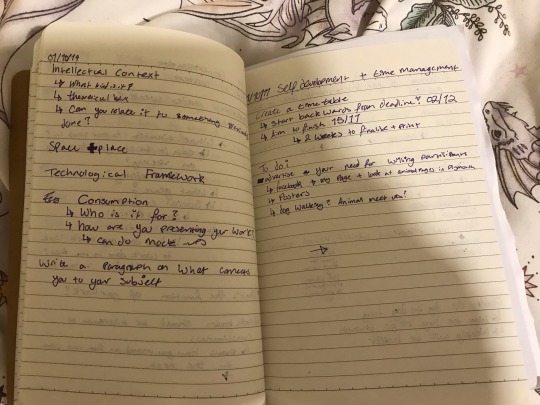 01/10/19
Intellectual Context
↳ What
↳ theoretical
↳ Can you relate it to something
done?
Space + place
Technological Framework
Consumption
↳ Who is it for?
↳ how are you presenting your work?
↳ can do mock ups
Write a Paragraph on What connects
you to your subject
Self development + time management
Create a time table
↳ Start backwards from deadline? 02/12
↳ Aim to finish 15/11
↳ 2 weeks to finalise + print
To do?
advertise your need for willing participants
↳ facebook my page + look at animal pages in Plymouth
↳ Posters
↳ Dog Walking? Animal meet ups?